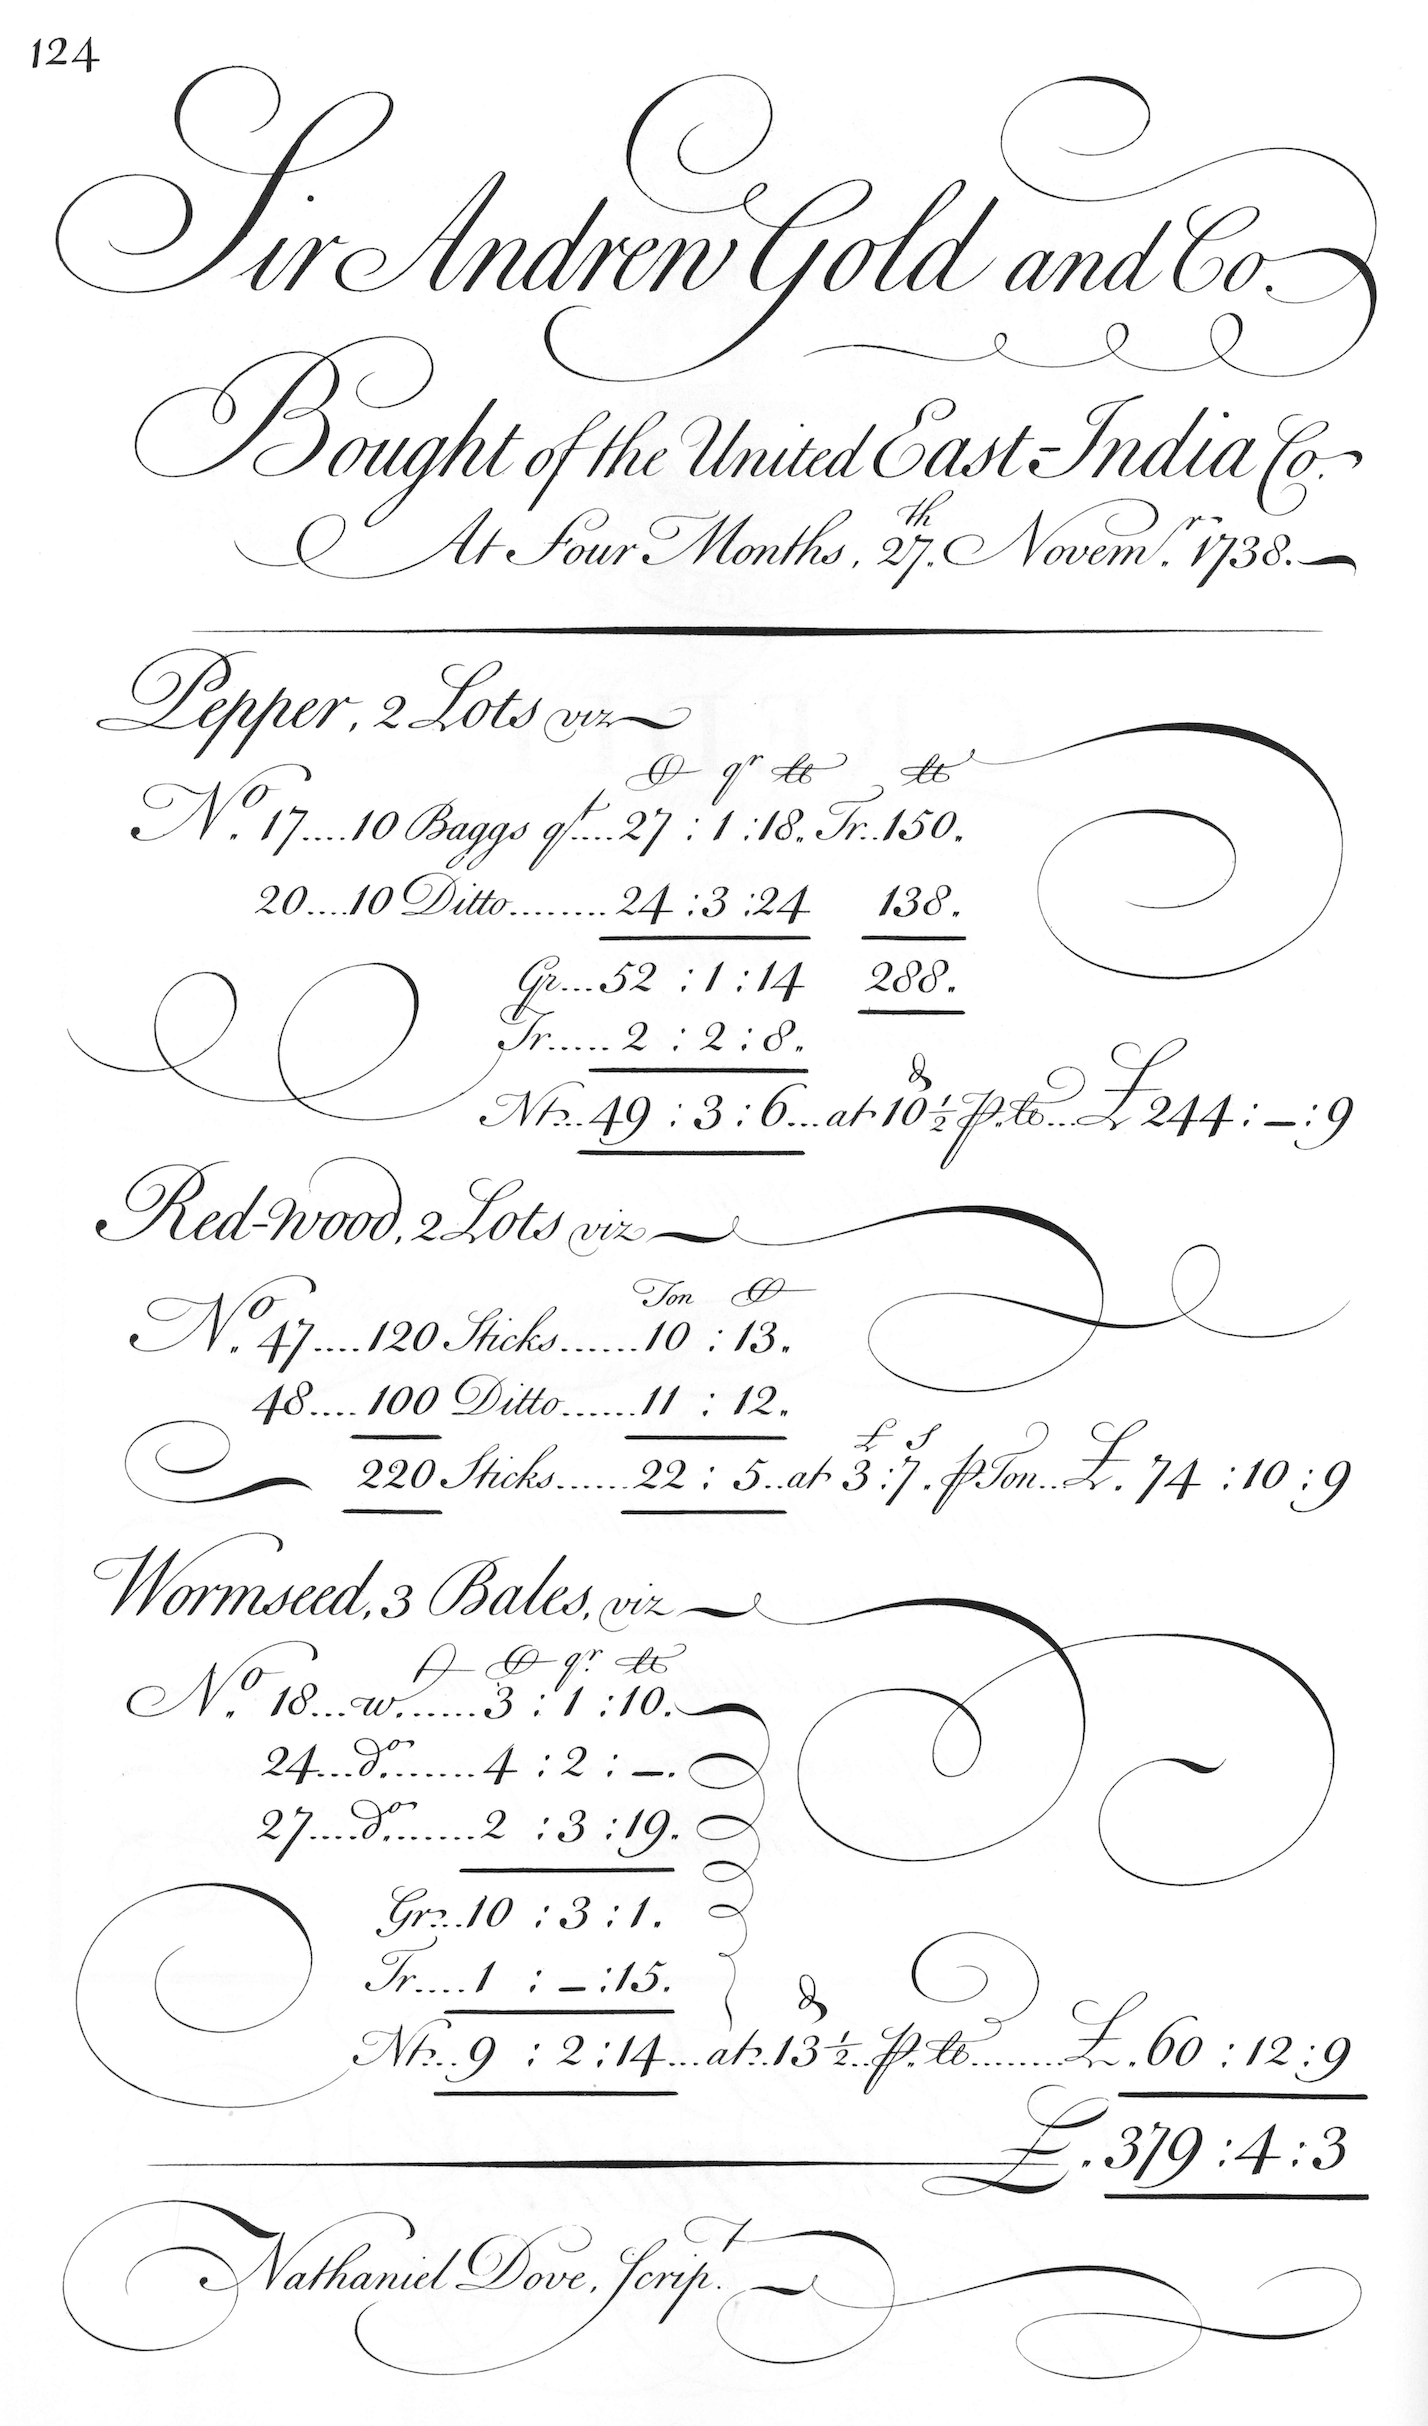 124
Sir Andrew Gold and Co.
Bought of the United East-India Co.
At Four Months, 27.th Novem.r 1738.
Pepper, 2 Lots viz
C qr lb lb
No. 17....10 Baggs qt....27 : 1 : 18. Tr..150.
20....10 Ditto.........24 : 3 : 24 138.
Gr...52 : 1 : 14 288.
Tr......2 : 2 : 8.
Nt...49 : 3 : 6...at 10½ d p. lb...£ 244 : – : 9
Red-wood, 2 Lots viz
Ton C
No. 47....120 Sticks.......10 : 13.
48....100 Ditto......11 : 12.
220 Sticks......22 : 5..at £3 : 7 S. p Ton..£. 74 : 10 : 9
Wormseed, 3 Bales, viz
C qr lb
No. 18...w.......3 : 1 : 10.
24...do........4 : 2 : –.
27....do........2 : 3 : 19.
Gr...10 : 3 : 1.
Tr....1 : – : 15.
Nt...9 : 2 : 14...at..13½ d..p. lb........£. 60 : 12 : 9
£. 379 : 4 : 3
Nathaniel Dove, Scrip.t